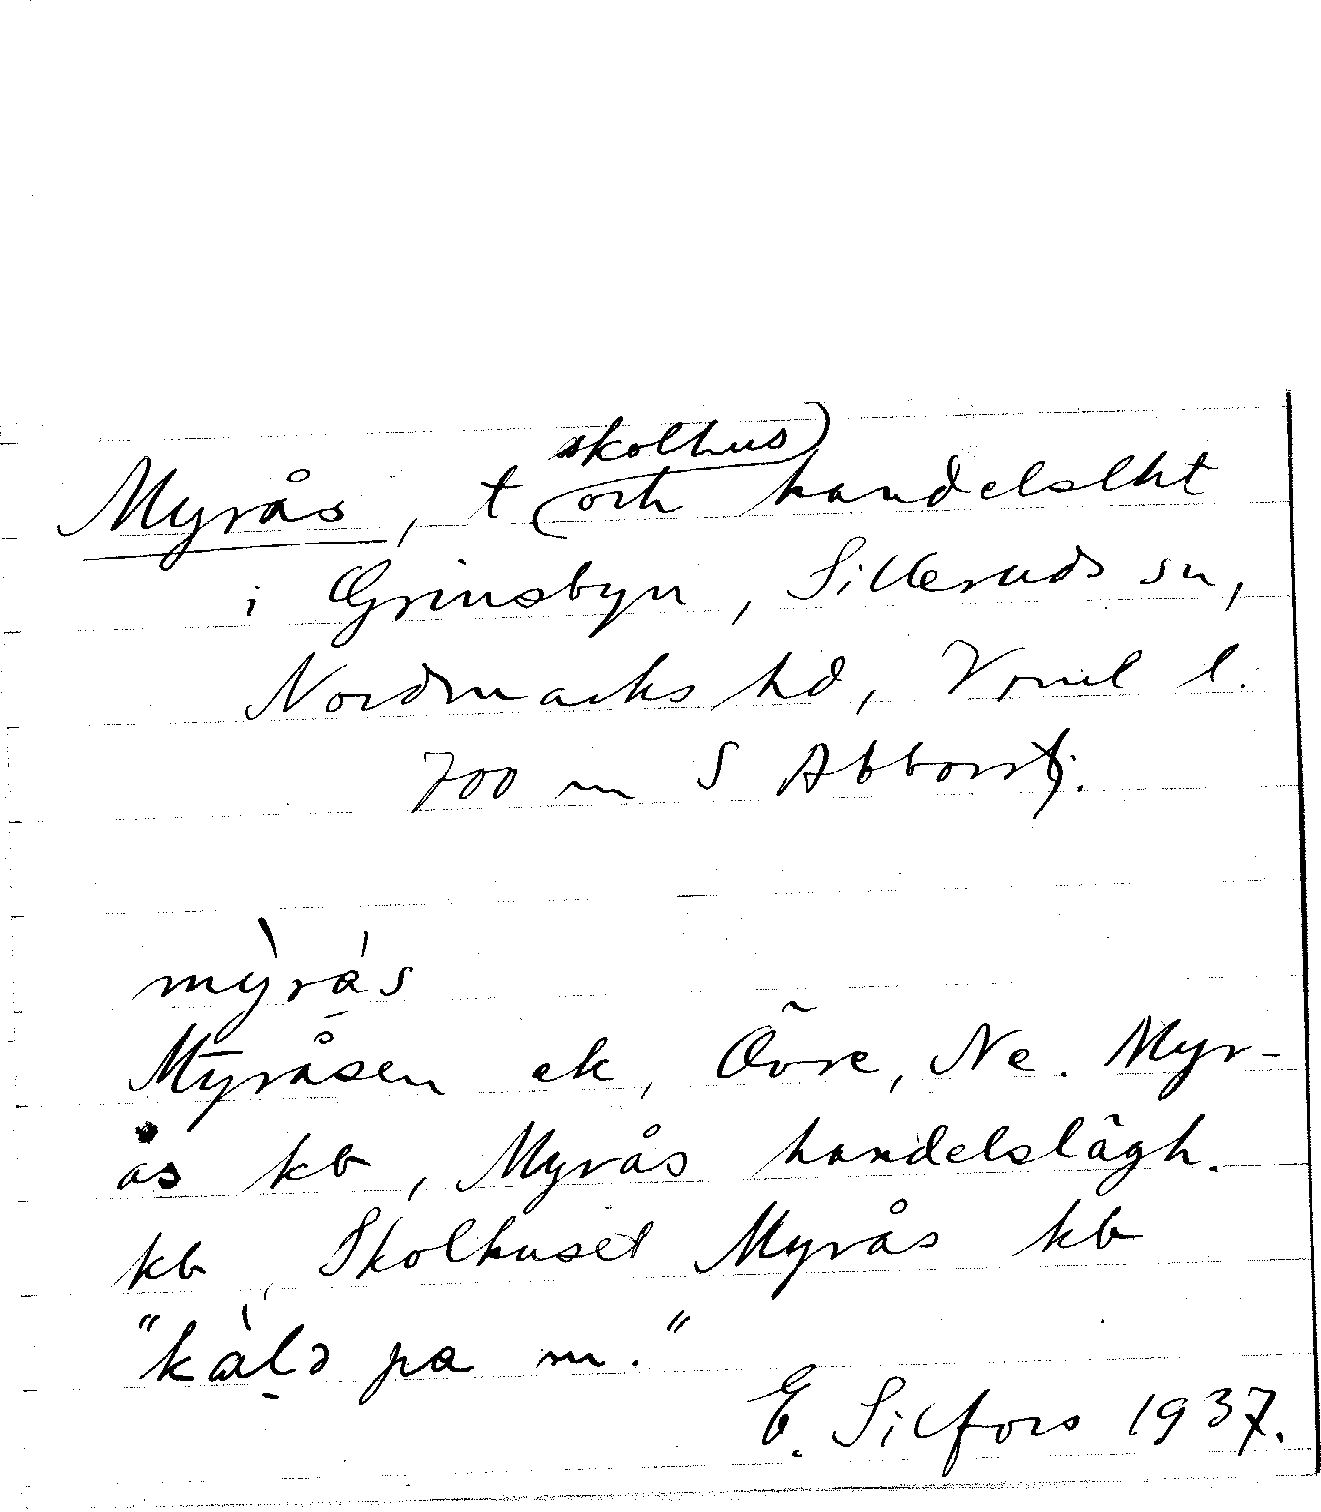 skolhus
Myrås, t och handelslht
i Grinsbyn, Silleruds sn,
Nordmarks hd, Vrml l.
700 m S Abborrtj.
mỳrás
Myråsen ek, Övre, Ne. Myr-
ås kb, Myrås handelslägh.
kb, Skolhuset Myrås kb
"kàlə pa m."
E. Silfors 1937.